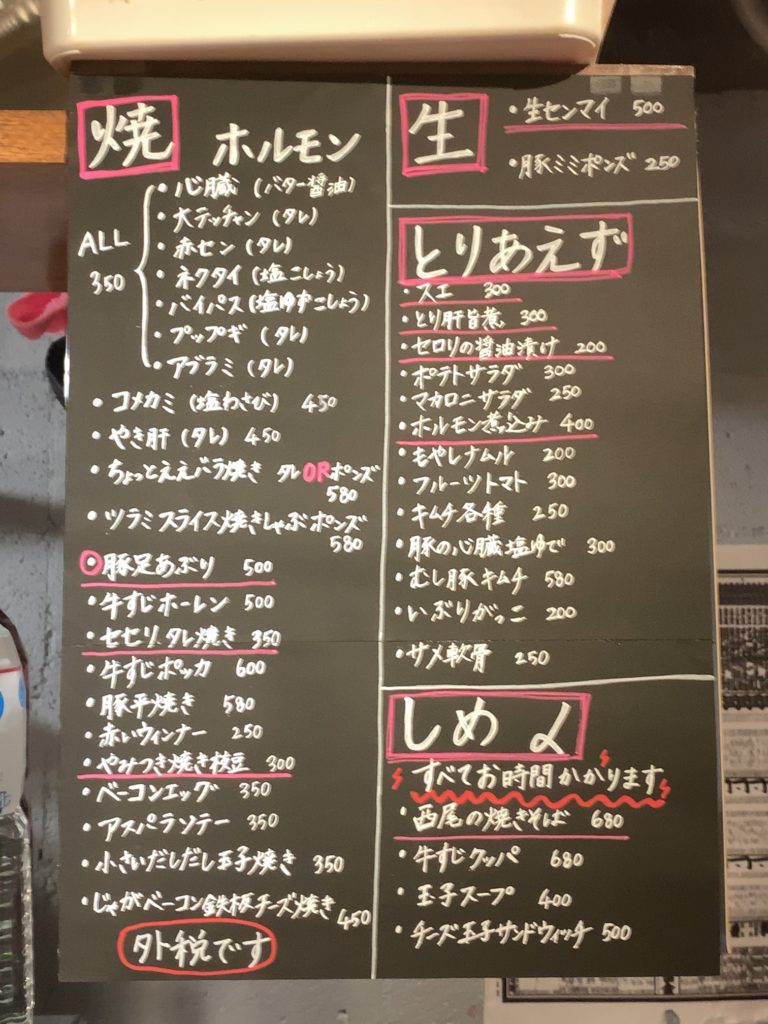 焼 ホルモン
ALL 350
・心臓(バター醤油)
・大テッチャン(タレ)
・赤セン(タレ)
・ネクタイ(塩こしょう)
・バイパス(塩ゆずこしょう)
・プップギ(タレ)
・アブラミ(タレ)
・コメカミ(塩わさび) 450
・やき肝(タレ) 450
・ちょっとええバラ焼き タレORポンズ
580
・ツラミスライス焼きしゃぶポンズ
580
○豚足あぶり 500
・牛すじホーレン 500
・セセリタレ焼き 350
・牛すじポッカ 600
・豚平焼き 580
・赤いウィンナー 250
・やみつき焼き枝豆 300
・ベーコンエッグ 350
・アスパラソテー 350
・小さいだしだし玉子焼き 350
・じゃがベーコン鉄板チーズ焼き
450
外税です
生
・生センマイ 500
・豚ミミポンズ 250
とりあえず
・スエ 300
・とり肝旨煮 300
・セロリの醤油漬け 200
・ポテトサラダ 300
・マカロニサラダ 250
・ホルモン煮込み 400
・もやしナムル 200
・フルーツトマト 300
・キムチ各種 250
・豚の心臓塩ゆで 300
・むし豚キムチ 580
・いぶりがっこ 200
・サメ軟骨 250
しめ
すべてお時間かかります
・西尾の焼きそば 680
・牛すじクッパ 680
・玉子スープ 400
・チーズ玉子サンドウィッチ 500